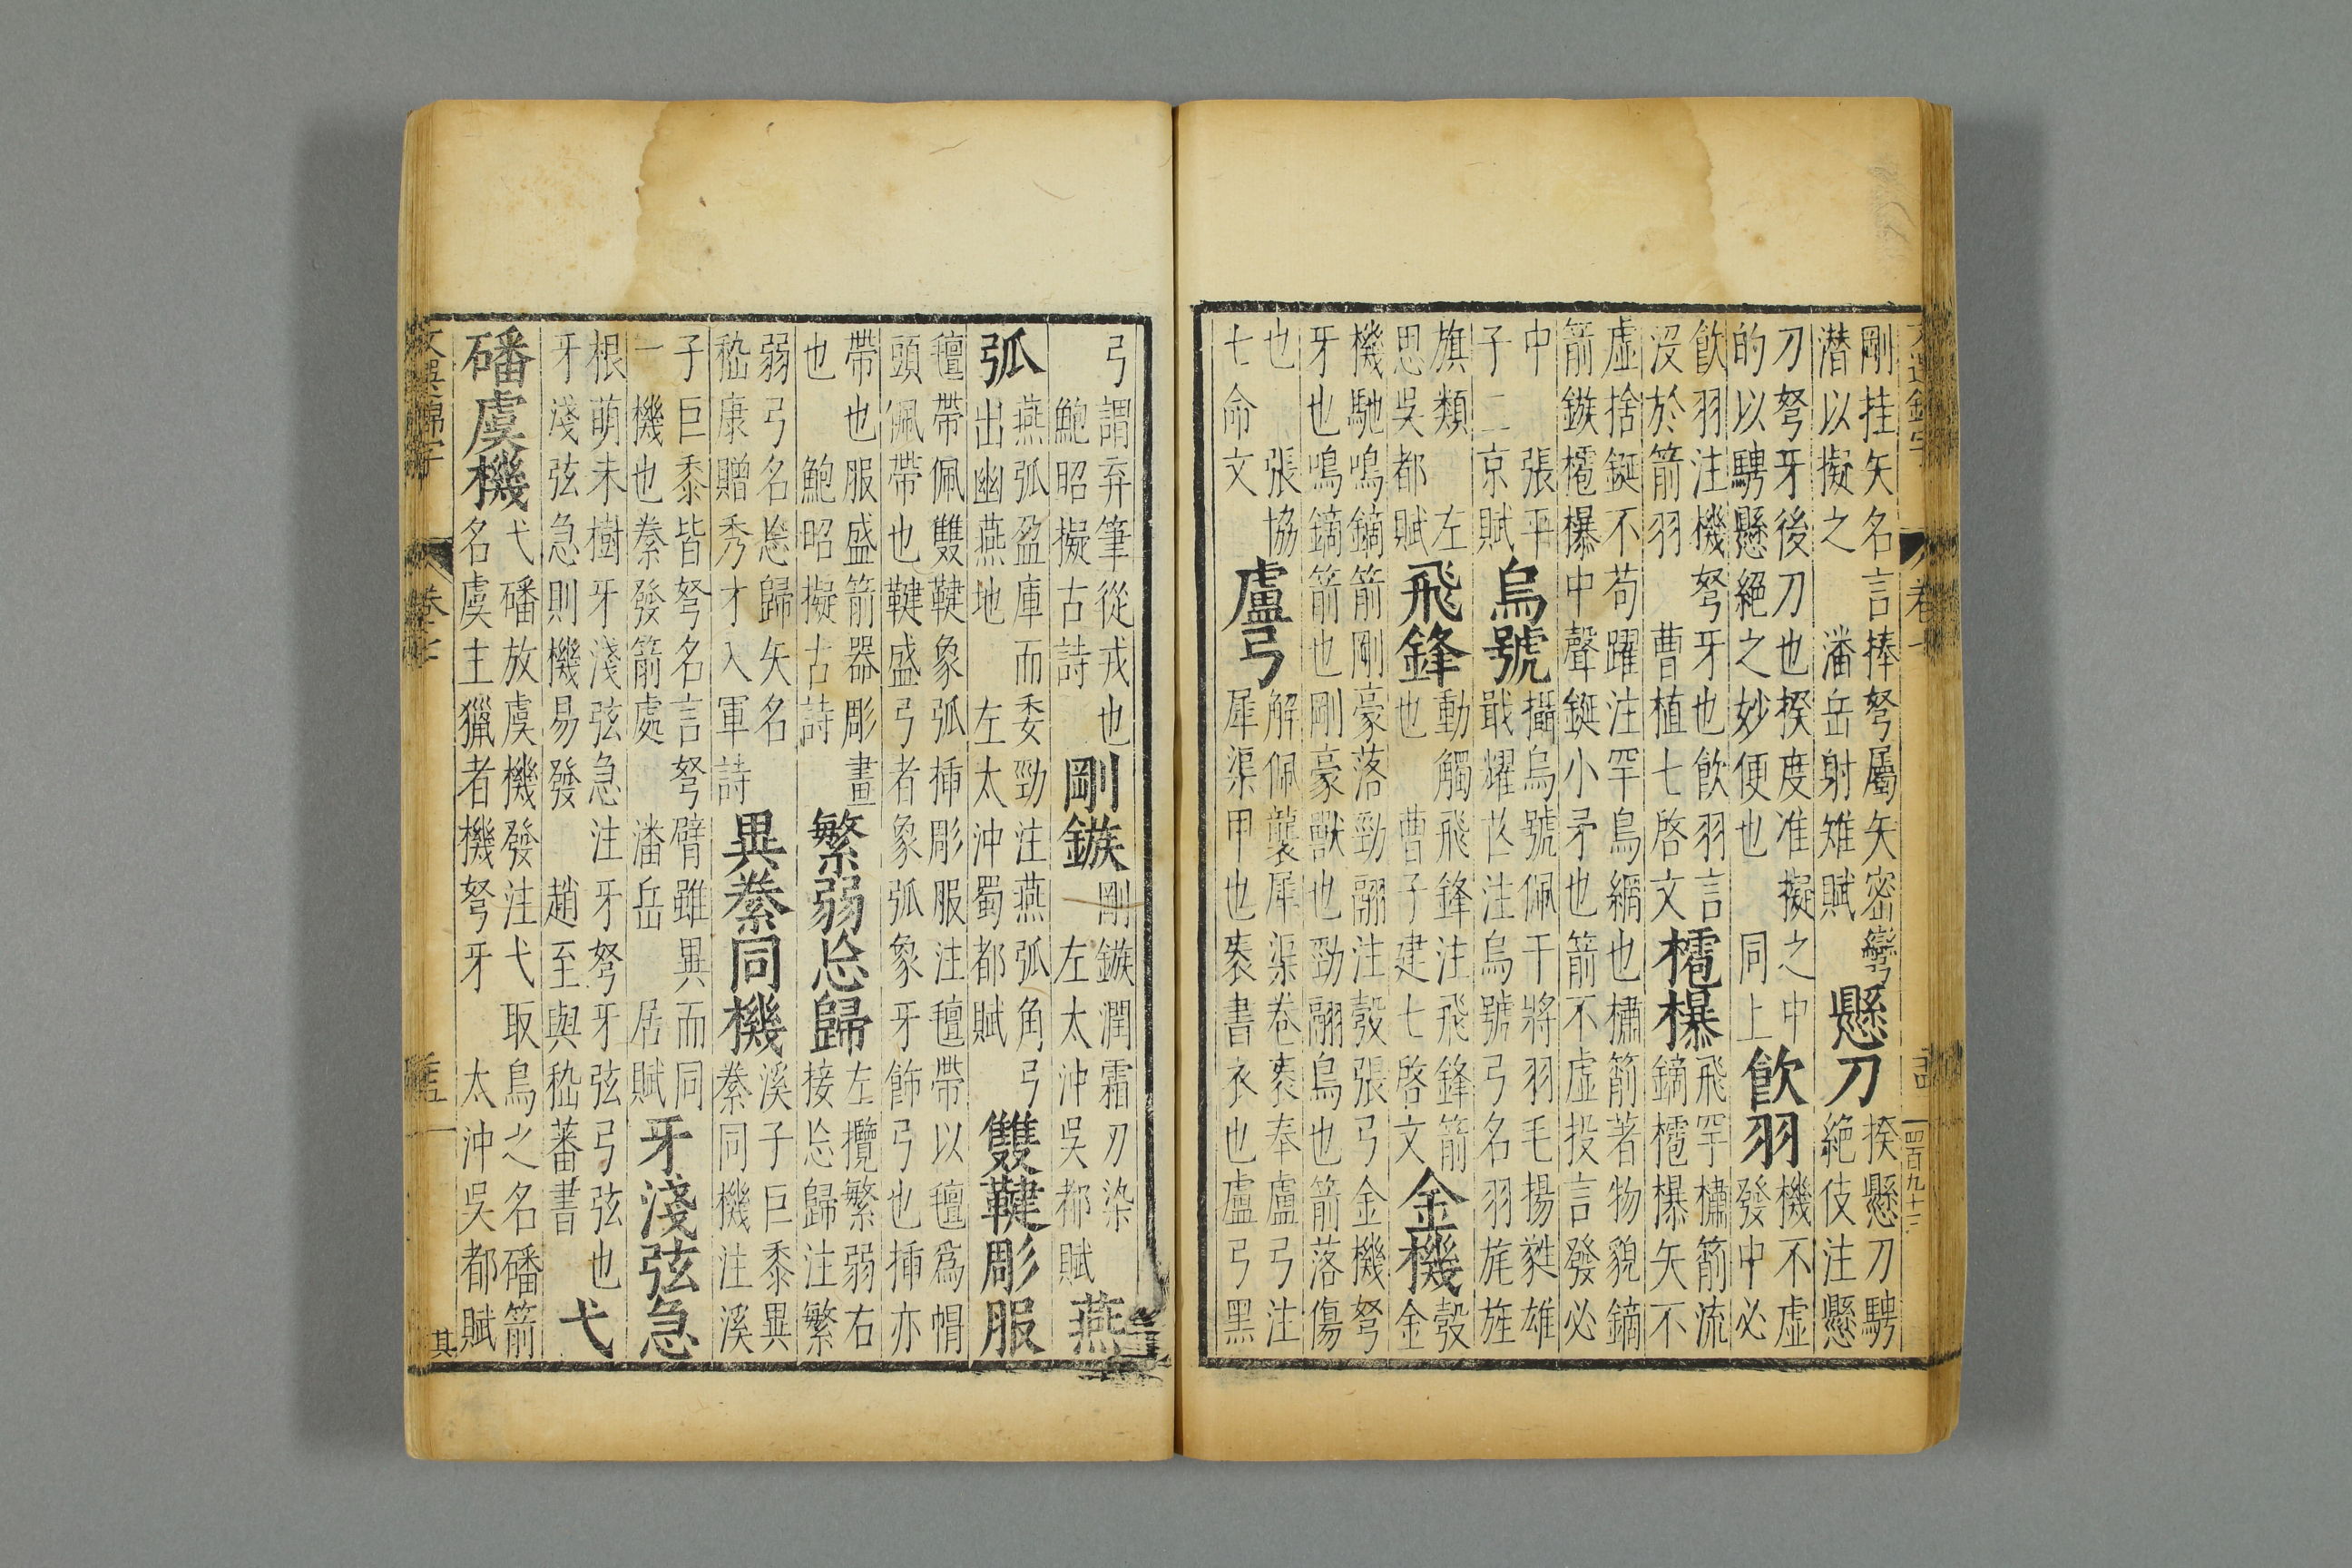 剛挂矢名言捧弩屬矢密彎
潜以擬之 潘岳射雉賦
懸刀
揆懸刀騁
絶伎注懸
刀弩牙後刀也揆度准擬之中
的以騁懸絶之妙便也 同上
飲羽
機不虛
發中必
飲羽注機弩牙也飲羽言
沒於箭羽 曹植七啓文
飛罕橚箾流
鏑矢不
虛捨鋋不苟躍注罕鳥網也橚箾著物貌鏑
箭鏃中聲鋋小矛也箭不虛投言發必
中 張平
子二京賦
烏號
攝烏號佩干將羽毛揚蕤雄
戢耀芒注烏號弓名羽旄旌
旗類 左
思吳都賦
飛鋒
動觸飛鋒注飛鋒箭
也 曹子建七啓文
金機
彀金
機馳鳴鏑箭剛豪落勁翮注彀張弓金機弩
牙也鳴鏑箭也剛豪獸也勁翮鳥也箭落傷
也 張協
七命文
盧弓
解佩襲犀渠卷袠奉盧弓注
犀渠甲也袠書衣也盧弓黑
卷
四百九十三
弓謂弃筆從戎也
鮑昭擬古詩
剛鏃
剛鏃潤霜刃染
左太沖吳都賦
燕
弧
燕弧盈庫而委勁注燕弧角弓
出幽燕地 左太沖蜀都賦
雙鞬彫服
氊帶佩雙鞬象弧揷彫服注氊帶以氊爲帽
頭佩帶也鞬盛弓者象弧象牙飾弓也揷亦
帶也服盛箭器彫畫
也 鮑昭擬古詩
繁弱忩歸
左攬繁弱右
接忩歸注繁
弱弓名忩歸矢名
嵇康贈秀才入軍詩
異絭同機
溪子巨黍異
絭同機注溪
子巨黍皆弩名言弩臂雖異而同
一機也絭發箭處 潘岳 居賦
牙淺弦急
根萌未樹牙淺弦急注牙弩牙弦弓弦也
牙淺弦急則機易發 趙至與嵇蕃書
弋
磻虞機
弋磻放虞機發注弋取鳥之名磻箭
名虞主獵者機弩牙 太沖吳都賦
文選錦字
卷七
其